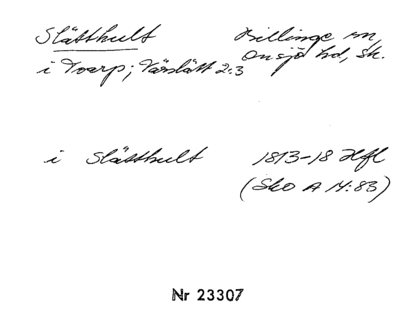 Slätthult Billinge sn,
i Torp; Värslätt 2:3 Onsjö hd, Sk.
i Slätthult 1813-18 Hfl
(Sko A 14:83)
Nr 23307